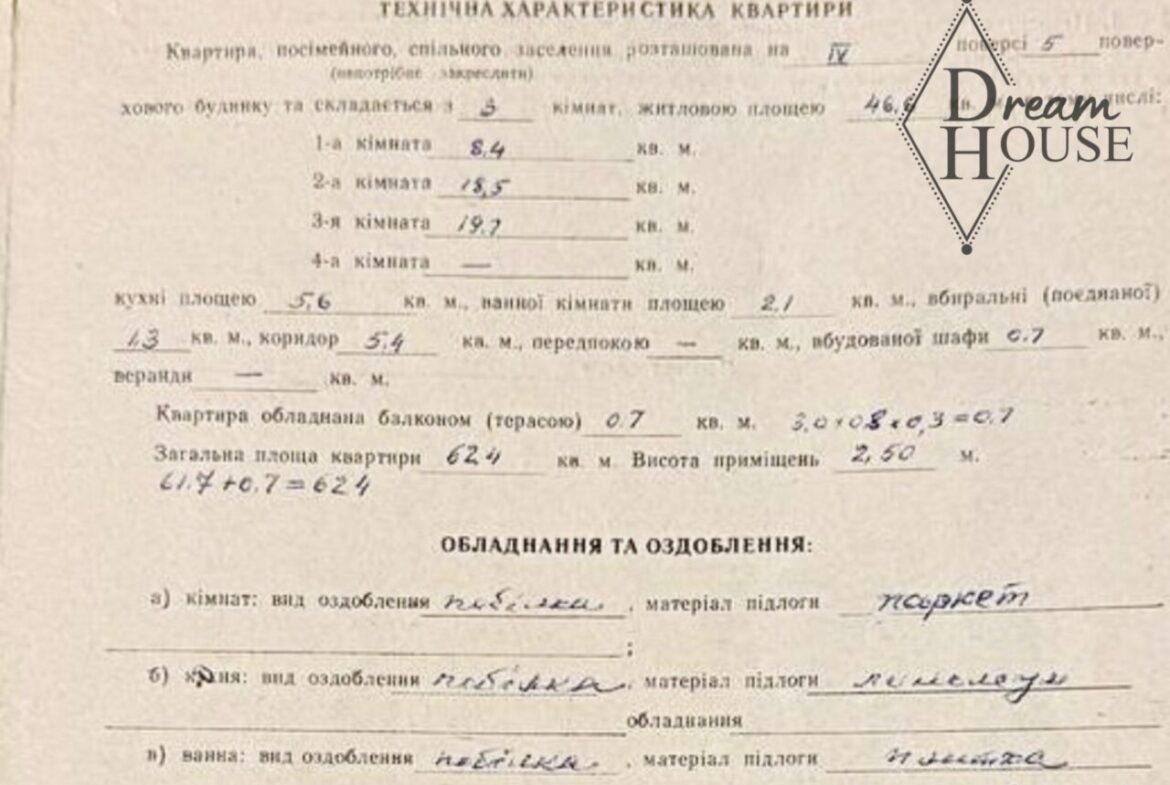 ТЕХНІЧНА ХАРАКТЕРИСТИКА КВАРТИРИ
Квартира, посімейного, спільного заселення розташована на IV поверсі 5 повер-
(непотрібне закреслити)
хового будинку та складається з 3 кімнат, житловою площею 46.6 кв. м. числі:
1-а кімната 8,4 кв. м.
2-а кімната 18,5 кв. м.
3-я кімната 19.7 кв. м.
4-а кімната — кв. м.
кухні площею 5,6 кв. м., ванної кімнати площею 2.1 кв. м., вбиральні (поєднаної)
1.3 кв. м., коридор 5.4 кв. м., передпокою — кв. м., вбудованої шафи 0.7 кв. м.,
веранди — кв. м.
Квартира обладнана балконом (терасою) 0.7 кв. м. 3,0×0.8×0,3=0.7
Загальна площа квартири 62.4 кв. м. Висота приміщень 2,50 м.
61.7+0.7=62.4
ОБЛАДНАННЯ ТА ОЗДОБЛЕННЯ:
а) кімнат: вид оздоблення побілка, матеріал підлоги паркет
;
б) кухня: вид оздоблення побілка, матеріал підлоги линолеум
обладнання
в) ванна: вид оздоблення побілка, матеріал підлоги плитка
Dream
HOUSE